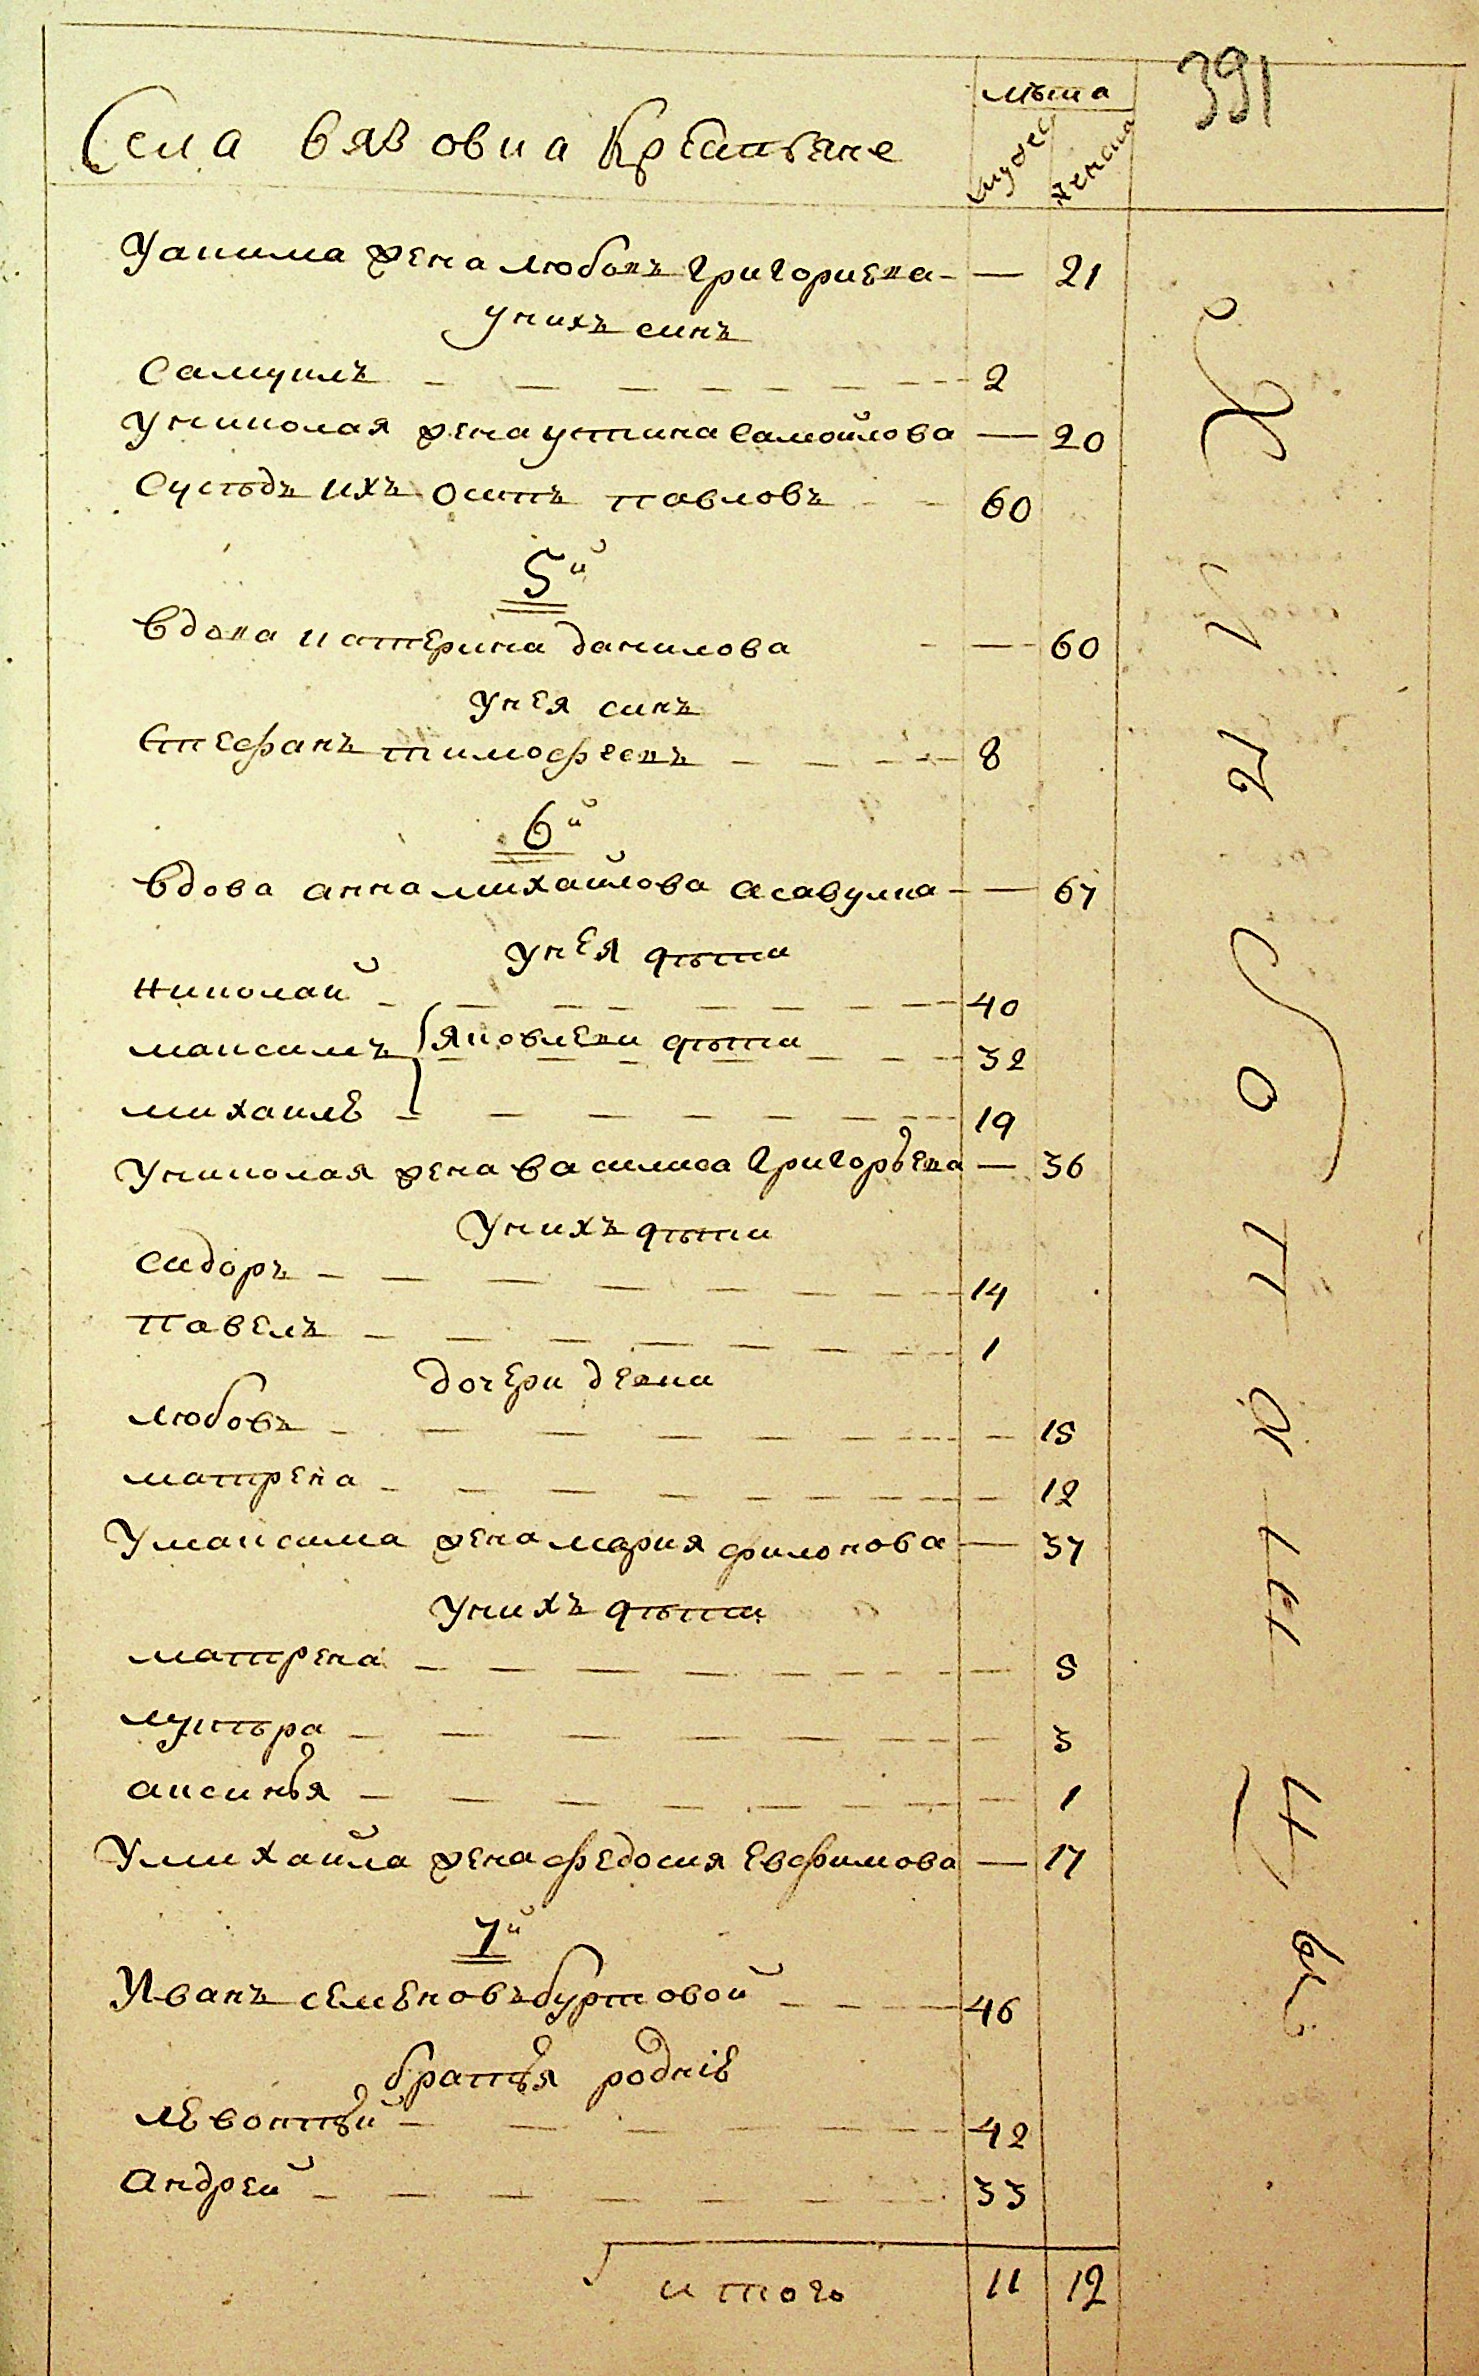 391
лѣта
Села Вязовка Крестьяне
мужес женска
У акима жена любовь григориева — 21
у нихъ синъ
Самуилъ 2
У николая жена устина самойлова — 20
Сусѣдъ ихъ осипъ павловъ 60
5й
Вдова катерина данилова — 60
у нея синъ
Стефанъ тимофеевъ 8
6й
Вдова анна михайлова асавулка — 67
у нея дѣти
николай 40
максимъ яковлеви дѣти 32
михаилъ 19
У николая жена василиса григорьева — 36
у нихъ дѣти
сидоръ 14
павелъ 1
дочери девки
любовъ 15
матрена 12
У максима жена мария филонова — 37
у нихъ дѣти
матрена 5
лукѣра 3
аксинья 1
У михайла жена федосия евфимова — 17
7й
Иванъ семеновъ буртовой 46
братья роднiе
левонтьй 42
андрей 33
итого 11 12